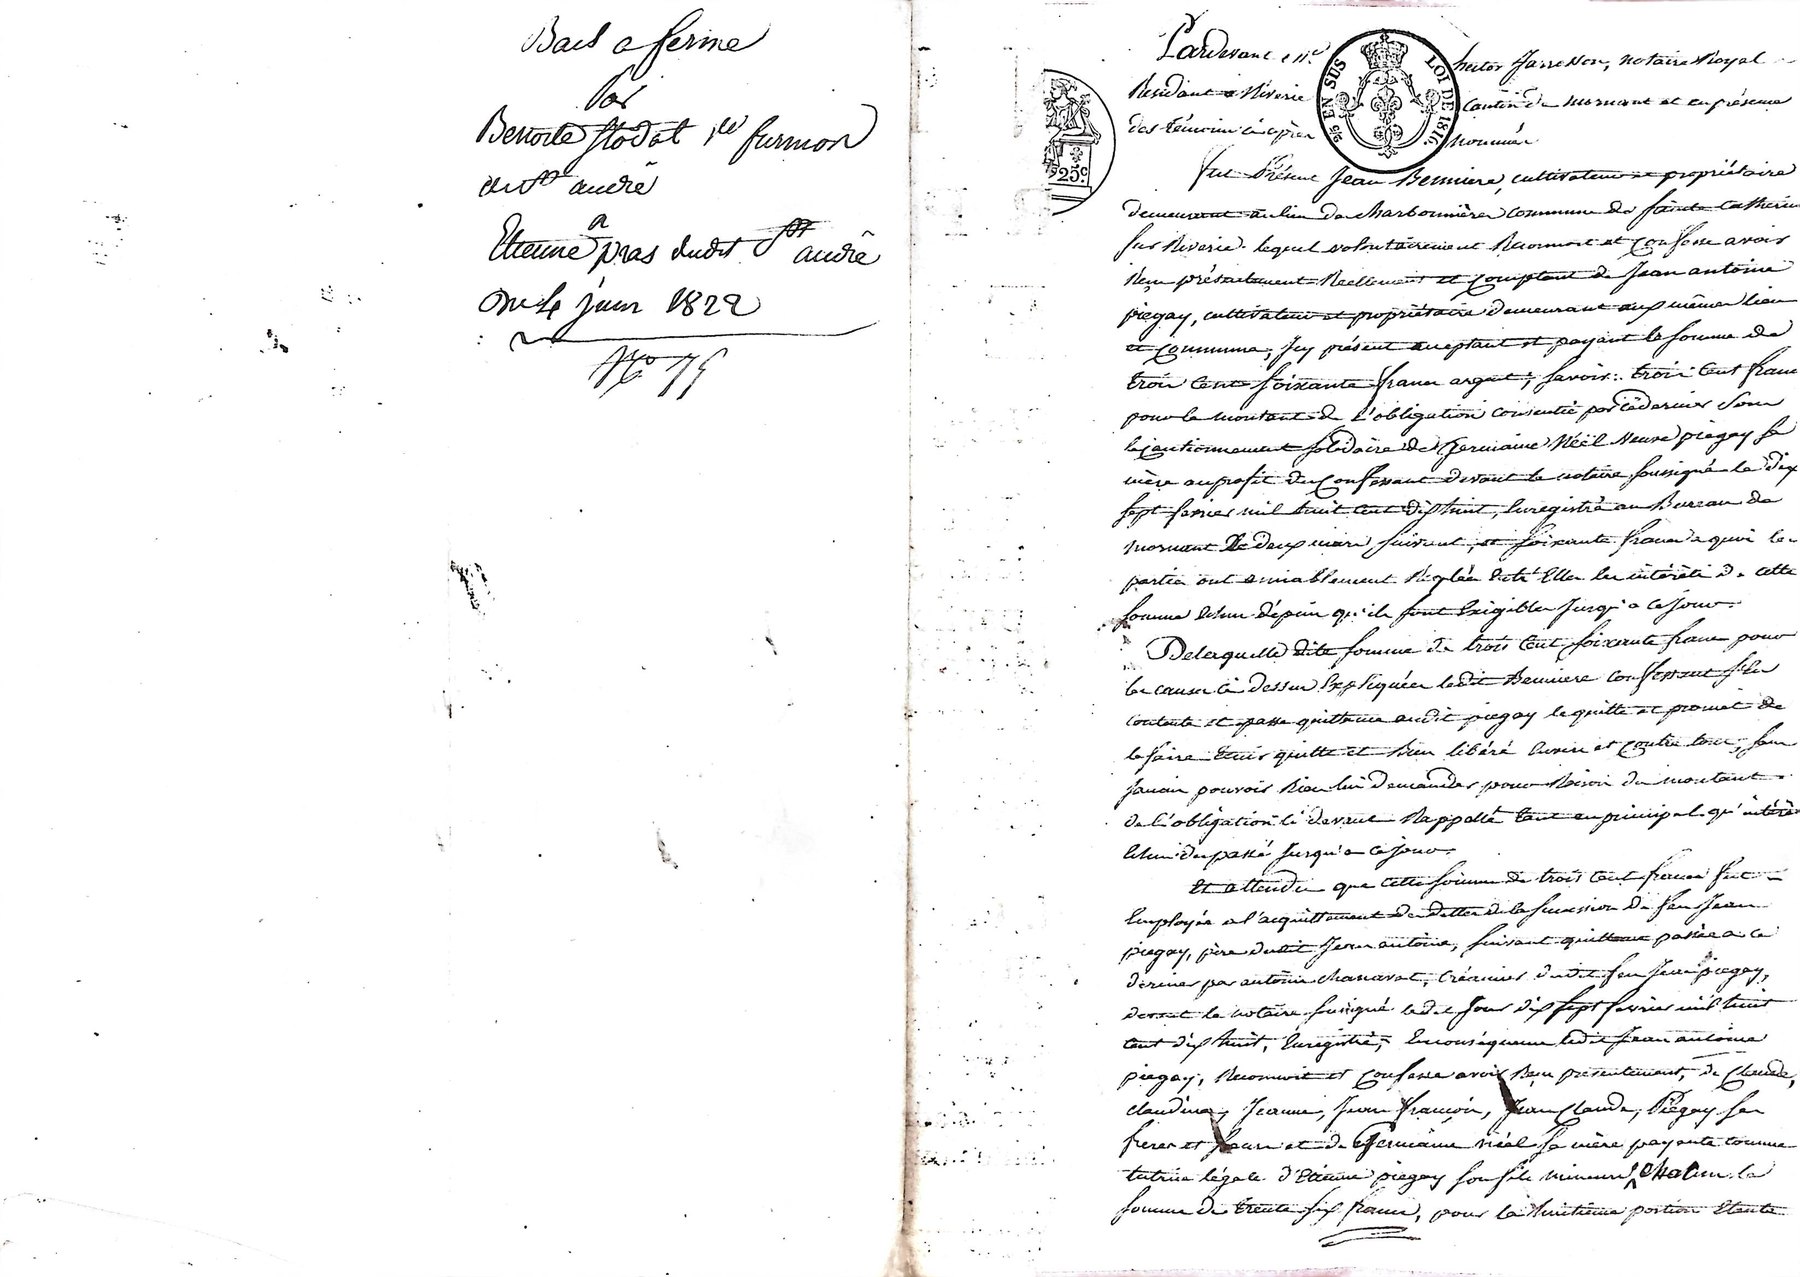 Bail a ferme
Par
Benoite Stodat furmon
de St andré
a
Etienne pras dudit St andré
Du 4 juin 1822
No 75
Pardevant Me hector Jarresson, notaire Royal
Résidant a Riverie canton de mornant et en présence
des témoins ci après nommés
EN SUS LOI DE 1816
25 c
fut Présent Jean Bernniere, cultivateur et propriétaire
demeurant au lieu de charbonnières commune de sainte catherine
sur Riverie. lequel volontairement Reconnoit et Confesse avoir
Reçu présentement Réellement et Comptant de Jean antoine
piegay, cultivateur et propriétaire demeurant aux mêmes lieu
et commune, Icy présent acceptant et payant la somme de
trois cent soixante francs argent, savoir: trois cent francs
pour le montant de l'obligation consentie par Ce dernier sous
le Cautionnement solidaire de Germaine Néel veuve piegay sa
mère au profit du Confessant devant le notaire soussigné le dix
sept fevrier mil huit cent dix huit, Enregistré au Bureau de
mornant le deux mars suivant, et soixante francs a quoi les
parties ont amiablement Réglée entr'Elles les intérêts de cette
somme Echus depuis qu'ils sont Exigibles Jusqu'a ce jour.
De laquelle dite somme de trois cent soixante francs pour
les causes ci dessus Expliquées ledit Bernniere confessant s'En
contente et passe quittance audit piegay le quitte et promet de
le faire tenir quitte et bien libéré Envers et contre tous, sans
jamais pouvoir Rien lui demander pour Raison du montant
de l'obligation ci devant Rappellé tant en principal qu'intérêts
Echus du passé Jusqu'a ce jour.
Et attendu que cette somme de trois cent francs fut
Employée a l'acquittement des dettes de la succession de feu Jean
piegay, père dudit Jean antoine, suivant quittance passée a ce
dernier par antoine chanavat, créancier dudit feu Jean piegay,
devant le notaire soussigné ledit jour dix sept fevrier mil huit
cent dix huit, Enregistrée, En conséquence ledit Jean antoine
piegay, Reconnoit et Confesse avoir Reçu presentement, de Claude,
Claudine, Jeanne, Jean françois, Jean Claude, Piegay ses
freres et sœurs et de Germaine néel sa mère payante comme
tutrice légale d'Etienne piegay son fils mineur, chacun la
somme de trente six francs, pour la huitieme portion